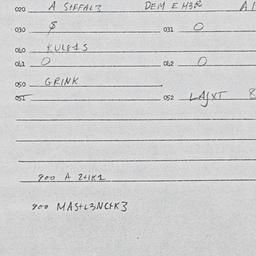 020 A STFFAL3 DEM E H3R A
030 $ 031 O
040 RULE1S
041 O 042 O
050 GRINK
051 052 LAJXT
900 A 2HK1
900 MASTL3NCTK3